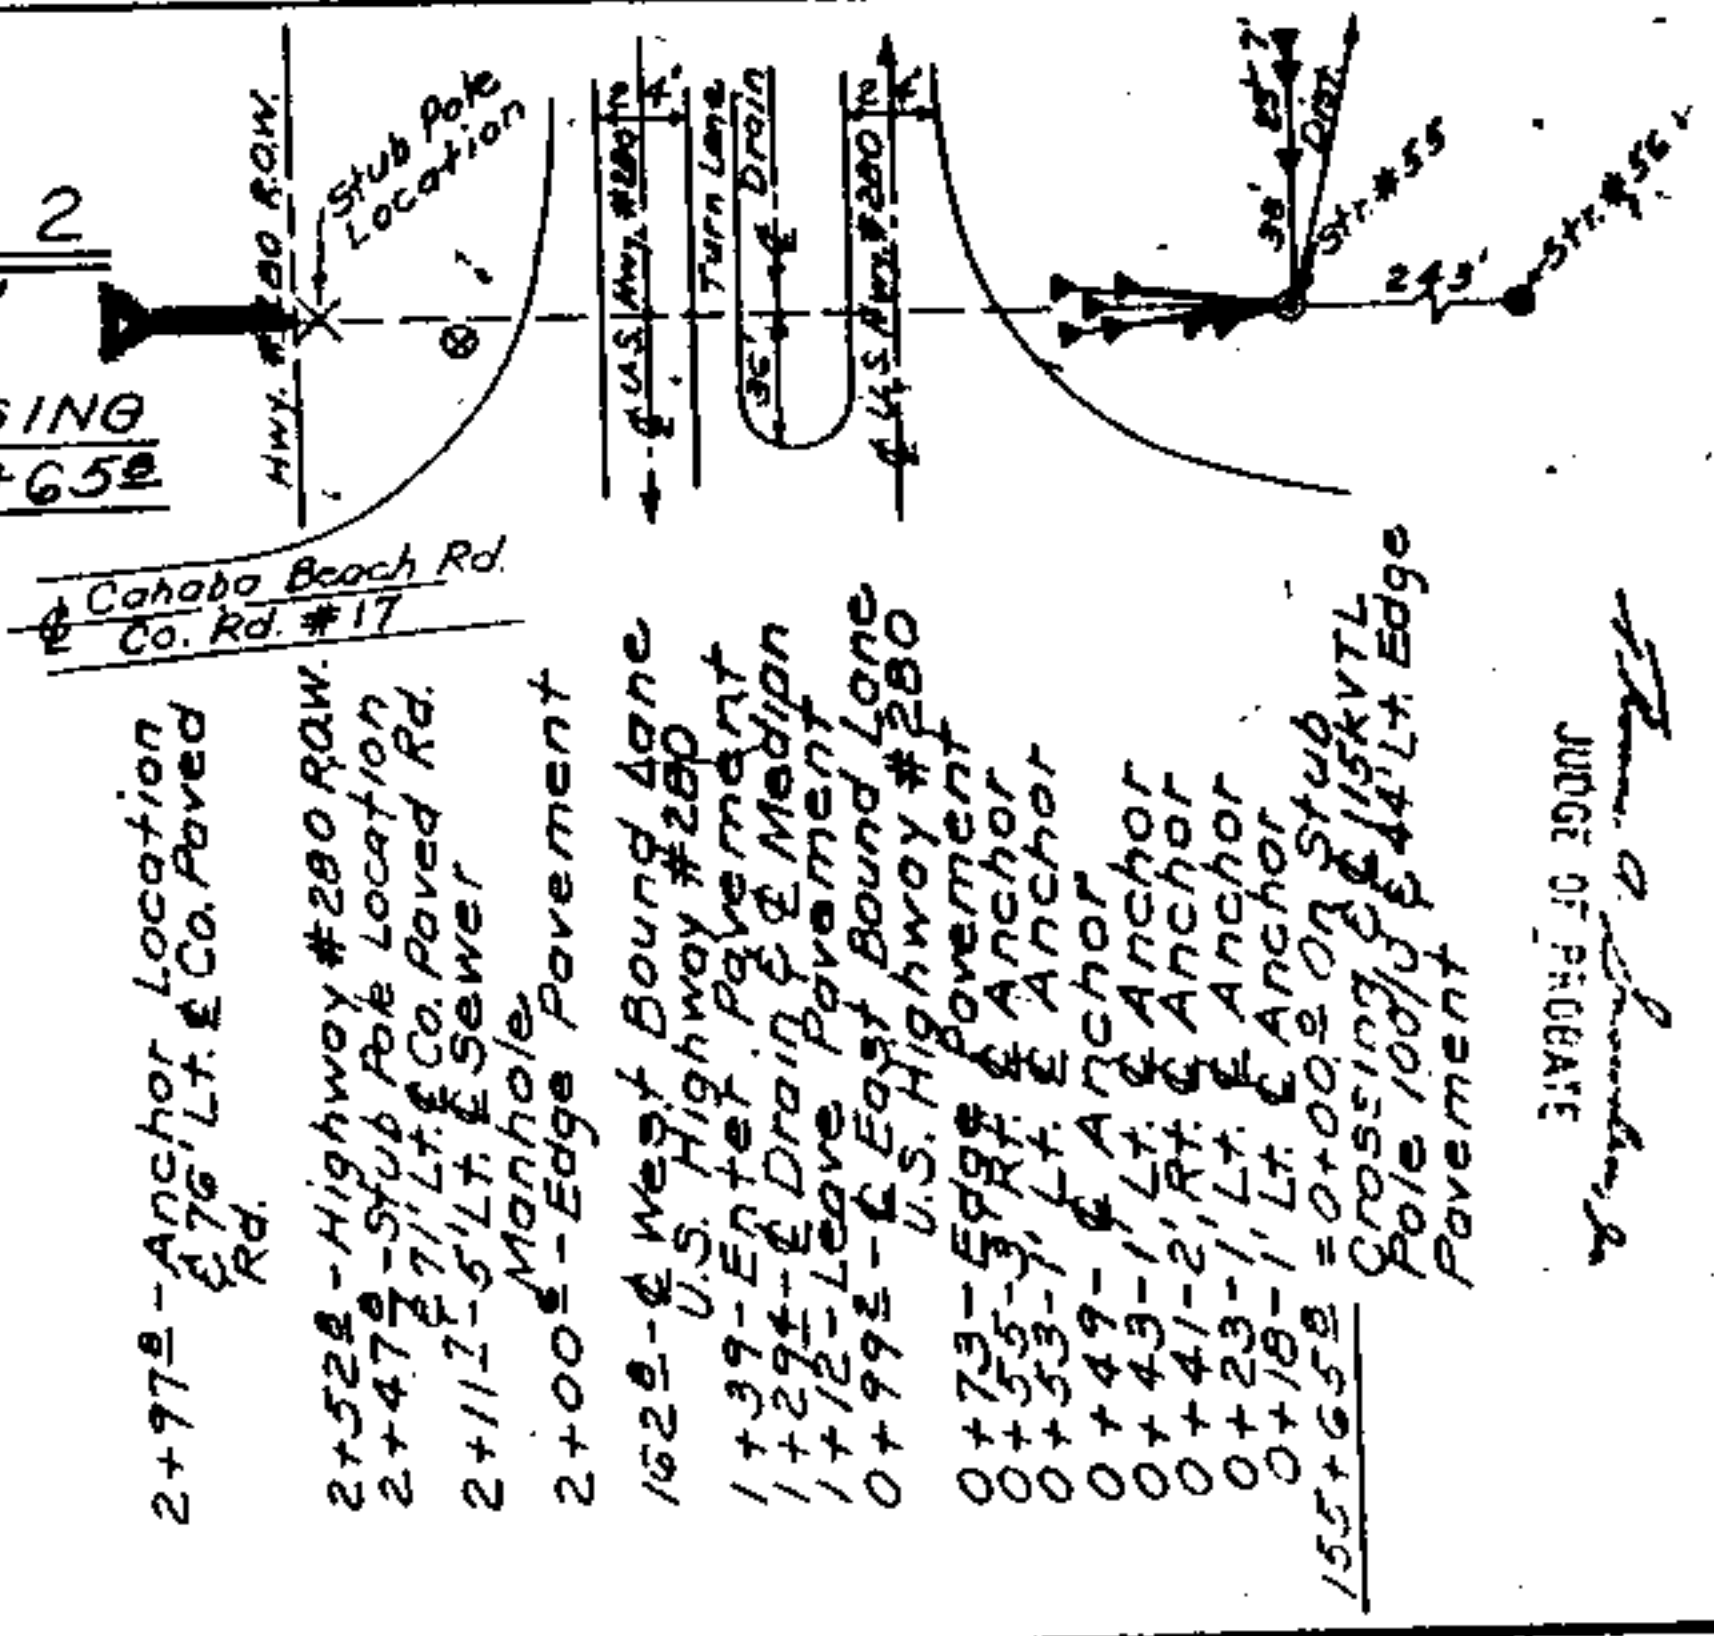 2
Hwy. #280 R.O.W.
Stub Pole
Location
℄ U.S. Hwy. #280
24'
Turn Lane
℄ Drain
36'
℄ U.S. Hwy. #280
24'
38'
Dist.
Str. #55
243'
Str. #56
SING
+65⁰
Cahaba Beach Rd.
℄ Co. Rd. #17
2+97⁸ - Anchor Location
& 76' Lt. ℄ Co. Paved
Rd.
2+52⁸ - Highway #280 R.O.W.
2+47⁸ - Stub Pole Location
& 71' Lt. ℄ Co. Paved Rd.
2+11⁷ - 5' Lt. ℄ Sewer
Manhole
2+00⁸ - Edge Pavement
162⁸ - ℄ West Bound Lane
U.S. Highway #280
1+39 - Enter Pavement
1+29⁴ - ℄ Drain & ℄ Median
1+12 - Leave Pavement
0+99² - ℄ East Bound Lane
U.S. Highway #280
0+73 - Edge Pavement
0+55 - 3' Rt. ℄ Anchor
0+53 - 1' Lt. ℄ Anchor
0+49 - ℄ Anchor
0+43 - 1' Lt. ℄ Anchor
0+41 - 2' Rt. ℄ Anchor
0+23 - 1' Lt. ℄ Anchor
0+18 - 1' Lt. ℄ Anchor
155+65⁰ = 0+00⁰ On Stub
Crossing & ℄ 115kVTL
Pole 100/3 & 44' Lt. Edge
Pavement
JUDGE OF PROBATE